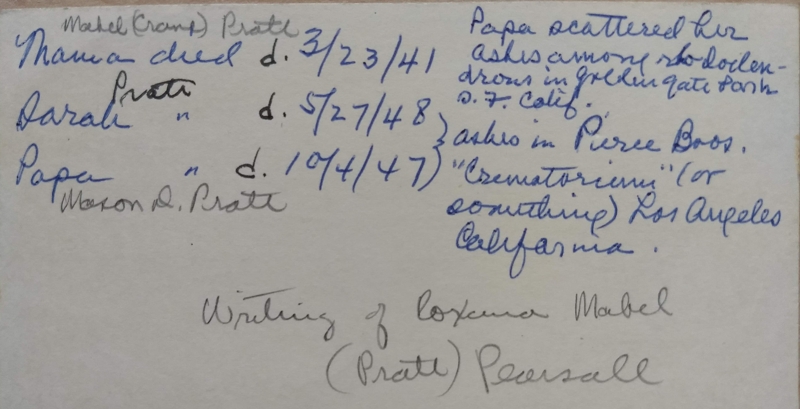 Mabel (Crane) Pratt
Mama died d. 3/23/41
Papa scattered her
ashes among rhododen-
drons in golden gate Park
S. F. Calif.
Pratt
Sarah " d. 5/27/48
Papa " d. 10/4/47
Mason D. Pratt
} ashes in Pierce Bros.
"Crematorium" (or
something) Los Angeles
California.
Writing of Roxana Mabel
(Pratt) Pearsall